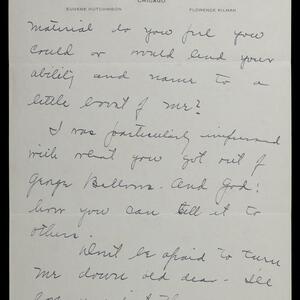 CHICAGO
EUGENE HUTCHINSON FLORENCE KILMAN
material do you feel you
could or would lend your
ability and name to a
little boost of me?
I was particularly impressed
with what you got out of
George Bellows. And God!
how you can tell it to
others.
Don't be afraid to turn
me down old dear - I'll